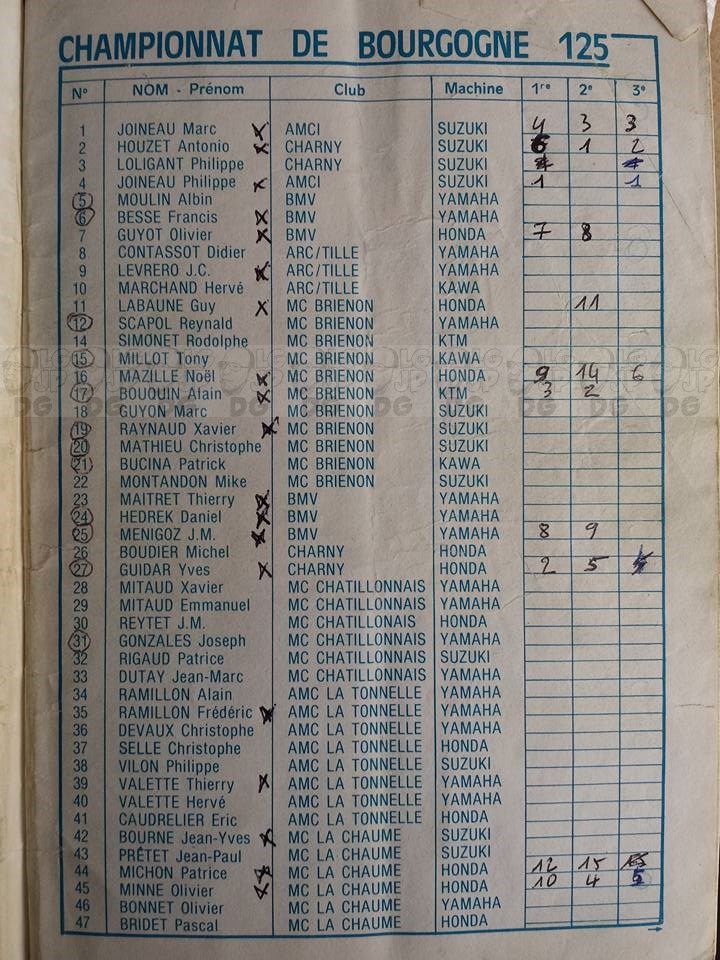 CHAMPIONNAT DE BOURGOGNE 125
N° NOM - Prénom Club Machine 1re 2e 3e
1 JOINEAU Marc x AMCI SUZUKI 4 3 3
2 HOUZET Antonio x CHARNY SUZUKI 6 1 2
3 LOLIGANT Philippe CHARNY SUZUKI
4 JOINEAU Philippe x AMCI SUZUKI 1 1
5 MOULIN Albin BMV YAMAHA
6 BESSE Francis x BMV YAMAHA
7 GUYOT Olivier x BMV HONDA 7 8
8 CONTASSOT Didier ARC/TILLE YAMAHA
9 LEVRERO J.C. x ARC/TILLE YAMAHA
10 MARCHAND Hervé ARC/TILLE KAWA
11 LABAUNE Guy x MC BRIENON HONDA 11
12 SCAPOL Reynald MC BRIENON YAMAHA
14 SIMONET Rodolphe MC BRIENON KTM
15 MILLOT Tony MC BRIENON KAWA
16 MAZILLE Noël x MC BRIENON HONDA 9 14 6
17 BOUQUIN Alain x MC BRIENON KTM 3 2
18 GUYON Marc MC BRIENON SUZUKI
19 RAYNAUD Xavier x MC BRIENON SUZUKI
20 MATHIEU Christophe MC BRIENON SUZUKI
21 BUCINA Patrick MC BRIENON KAWA
22 MONTANDON Mike MC BRIENON SUZUKI
23 MAITRET Thierry x BMV YAMAHA
24 HEDREK Daniel x BMV YAMAHA
25 MENIGOZ J.M. x BMV YAMAHA 8 9
26 BOUDIER Michel CHARNY HONDA
27 GUIDAR Yves x CHARNY HONDA 2 5
28 MITAUD Xavier MC CHATILLONNAIS YAMAHA
29 MITAUD Emmanuel MC CHATILLONNAIS YAMAHA
30 REYTET J.M. MC CHATILLONAIS HONDA
31 GONZALES Joseph MC CHATILLONNAIS YAMAHA
32 RIGAUD Patrice MC CHATILLONNAIS SUZUKI
33 DUTAY Jean-Marc MC CHATILLONNAIS YAMAHA
34 RAMILLON Alain AMC LA TONNELLE YAMAHA
35 RAMILLON Frédéric x AMC LA TONNELLE YAMAHA
36 DEVAUX Christophe AMC LA TONNELLE YAMAHA
37 SELLE Christophe AMC LA TONNELLE HONDA
38 VILON Philippe AMC LA TONNELLE SUZUKI
39 VALETTE Thierry x AMC LA TONNELLE YAMAHA
40 VALETTE Hervé AMC LA TONNELLE YAMAHA
41 CAUDRELIER Eric AMC LA TONNELLE HONDA
42 BOURNE Jean-Yves x MC LA CHAUME SUZUKI
43 PRÊTET Jean-Paul MC LA CHAUME SUZUKI
44 MICHON Patrice x MC LA CHAUME HONDA 12 15
45 MINNE Olivier x MC LA CHAUME HONDA 10 4 5
46 BONNET Olivier MC LA CHAUME YAMAHA
47 BRIDET Pascal MC LA CHAUME HONDA